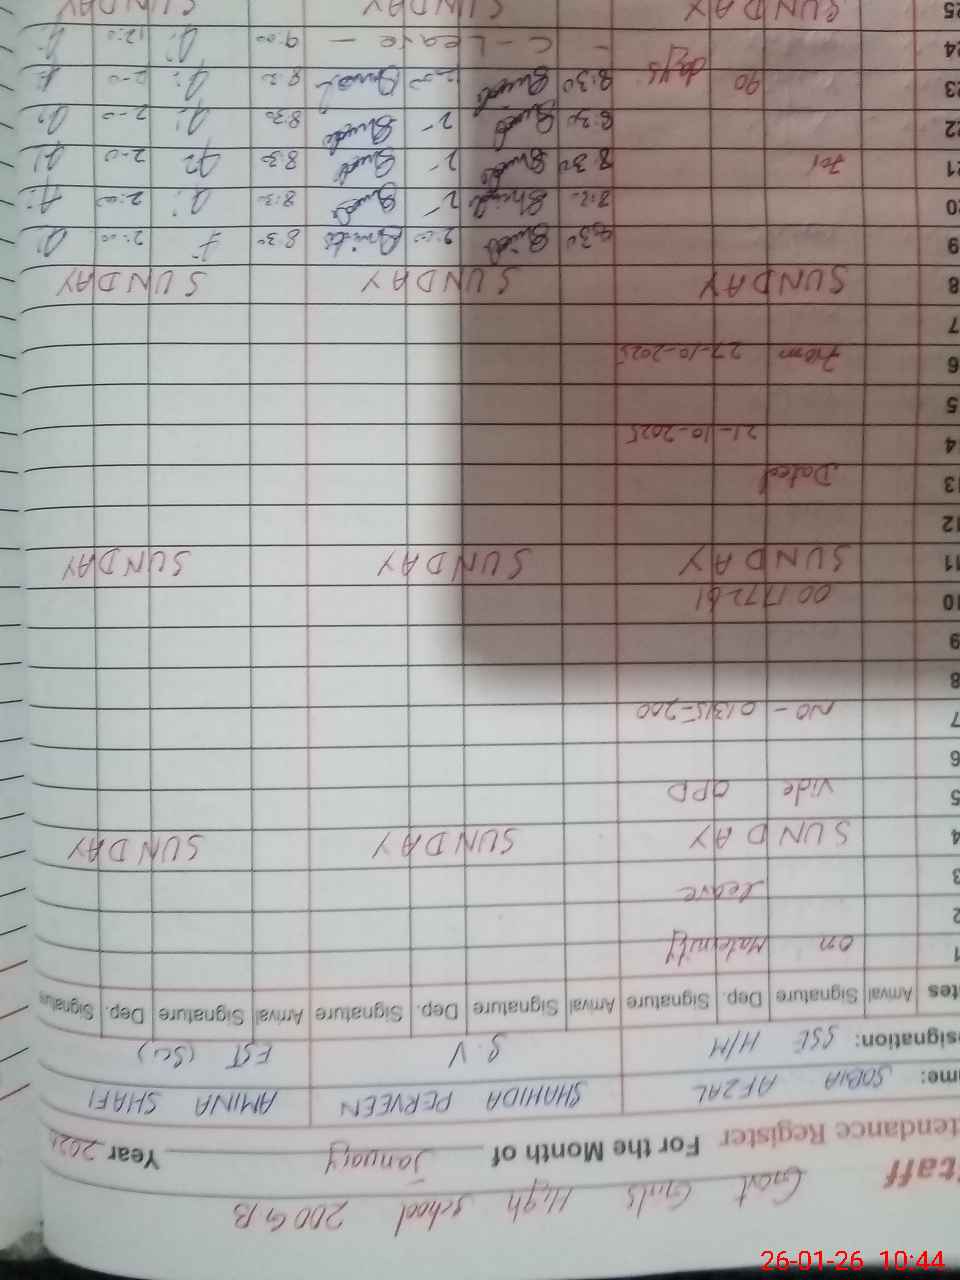 Govt Girls High School 200 GB
Staff
tendance Register For the Month of January Year 202
me: SOBIA AFZAL SHAHIDA PERVEEN AMINA SHAFI
esignation: SSE H/M S.V EST (Sci)
tes Arrival Signature Dep. Signature Arrival Signature Dep. Signature Arrival Signature Dep. Signature
1 on Maternity
2
3 Leave
4 SUNDAY SUNDAY SUNDAY
5 Vide OPD
6
7 NO - 01315-200
8
9
10 00177261
11 SUNDAY SUNDAY SUNDAY
12
13 Dated
14 21-10-2025
5
6 From 27-10-2025
7
8 SUNDAY SUNDAY SUNDAY
9 8:30 2:00 8:30 2:00
20 2 8:30 2:00
21 For 8:30 2 8:30 2-0
22 8:30 2 8:30 2-0
23 90 days 8:30 8:30 2-0
24 - C-Leave - 9:00 12:0
25 SUNDAY SUNDAY SUNDAY
26-01-26 10:44